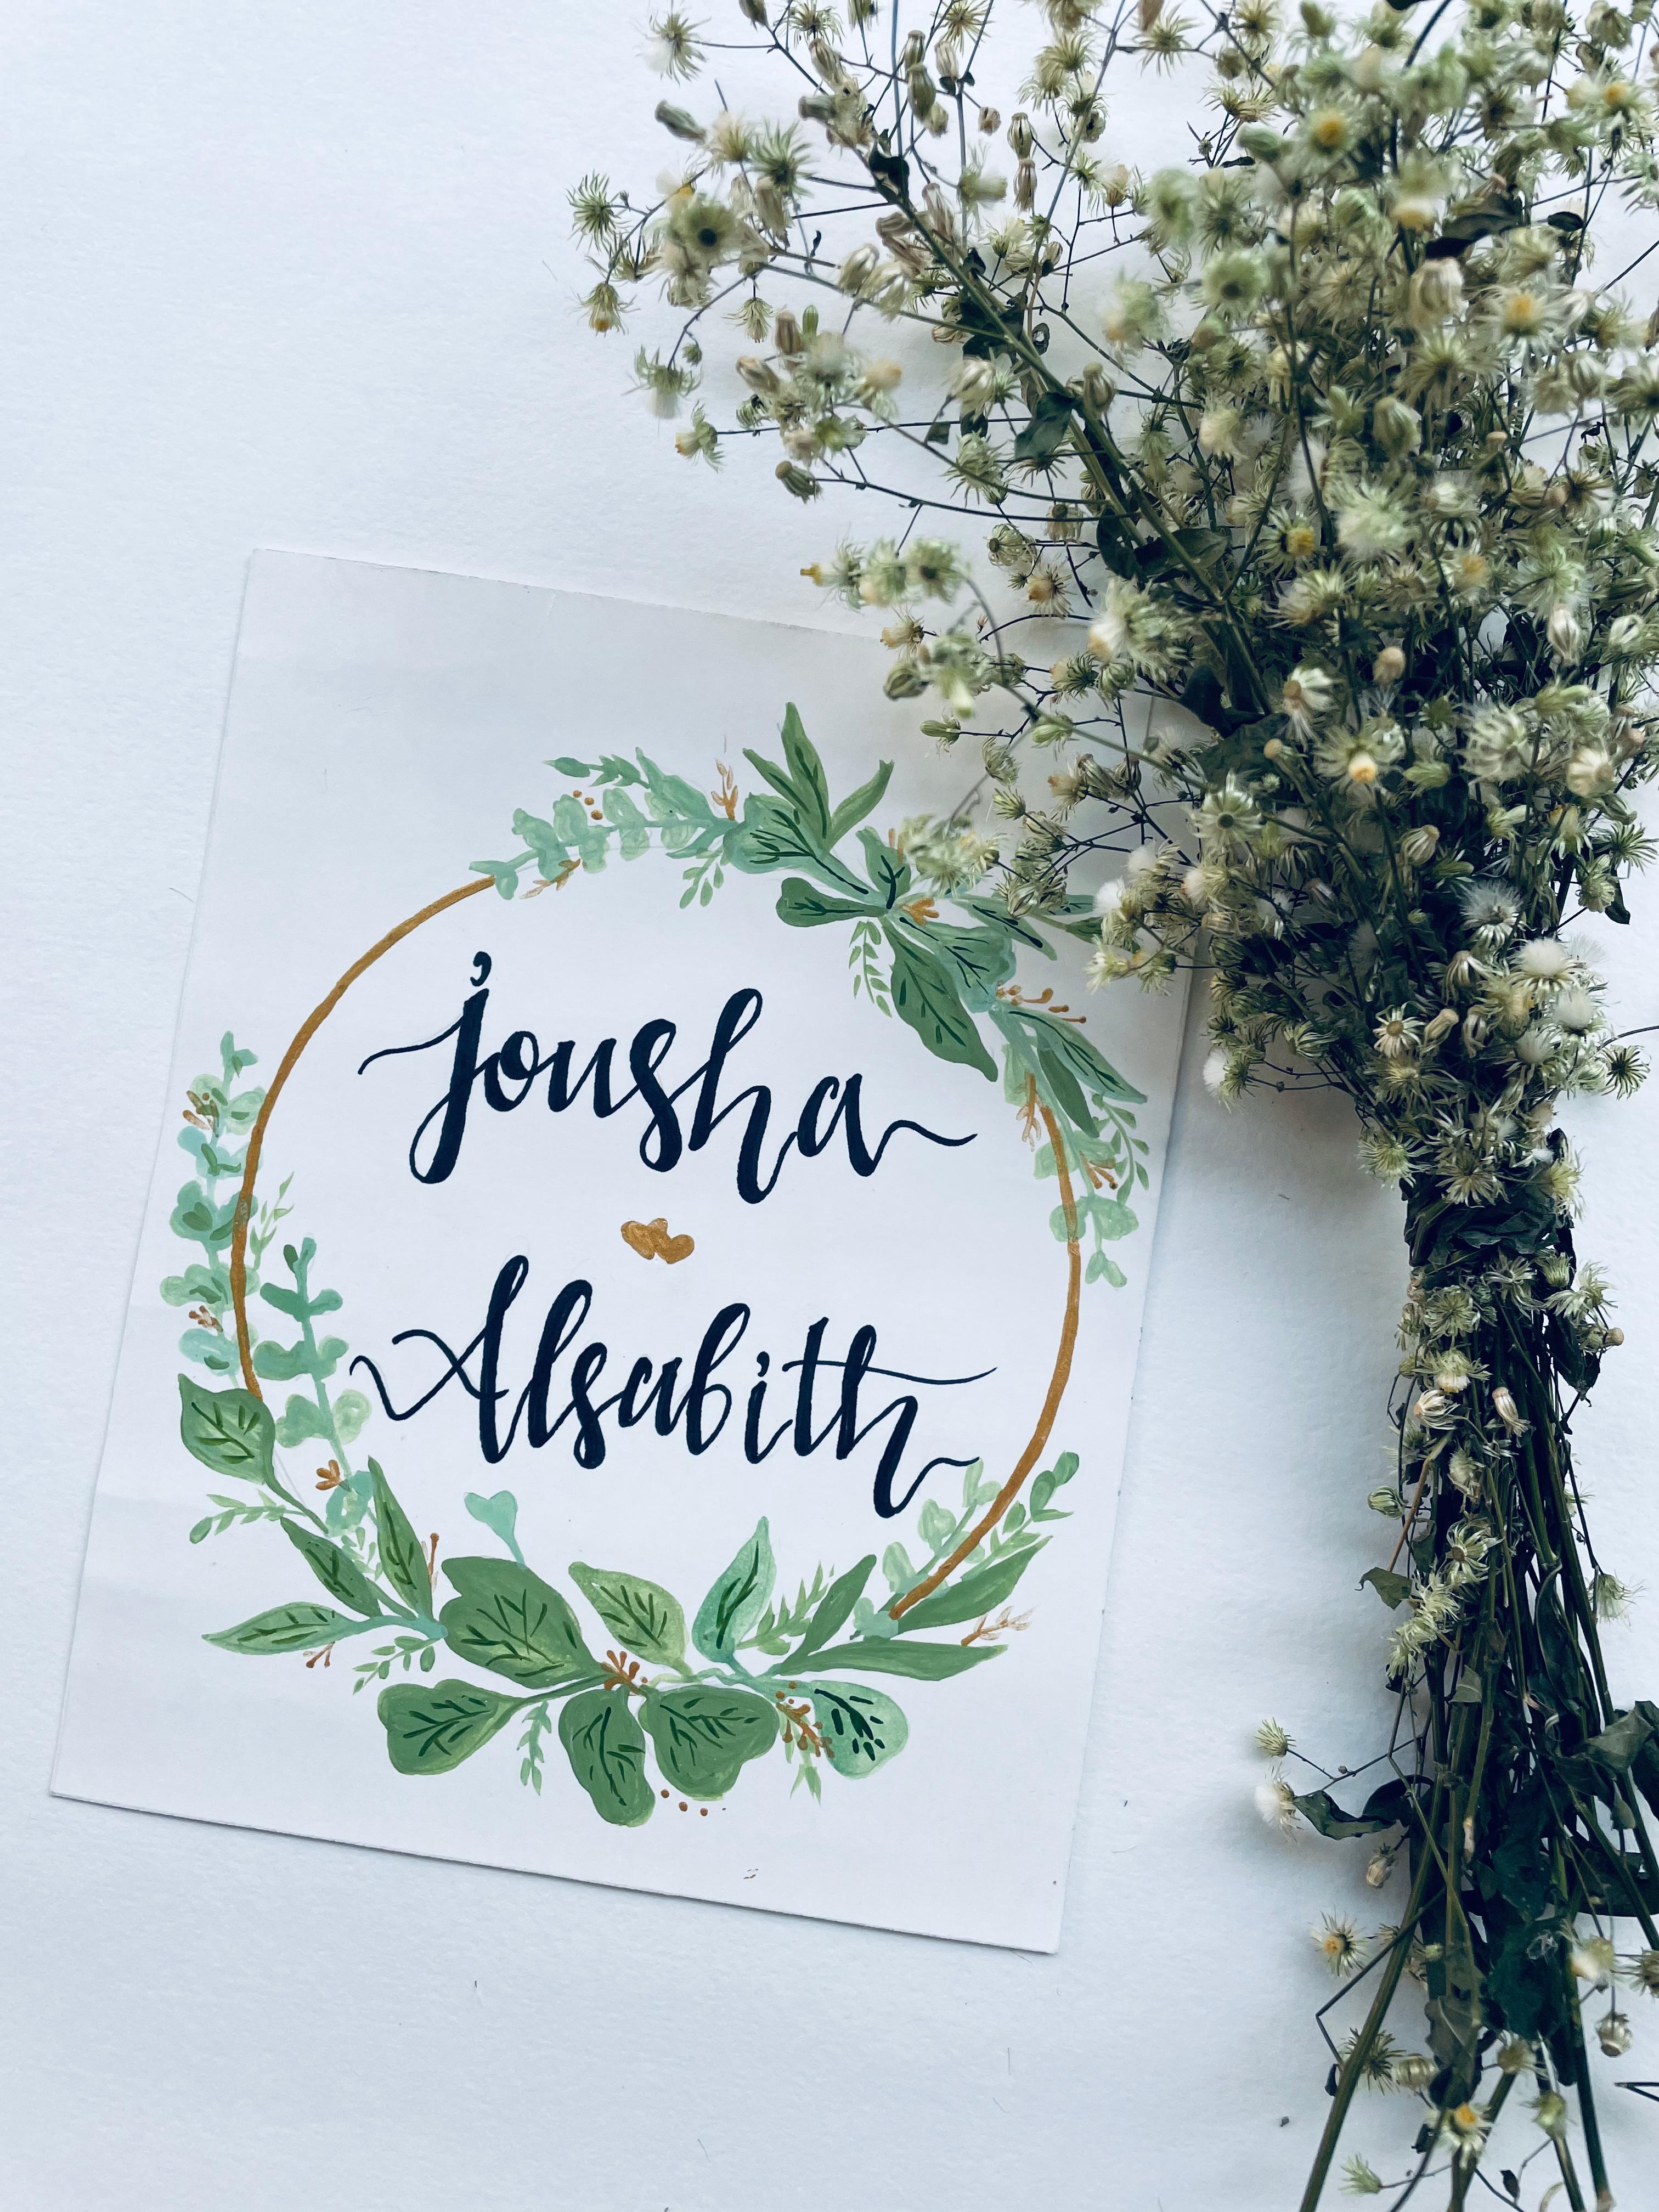 jousha
Alsabith